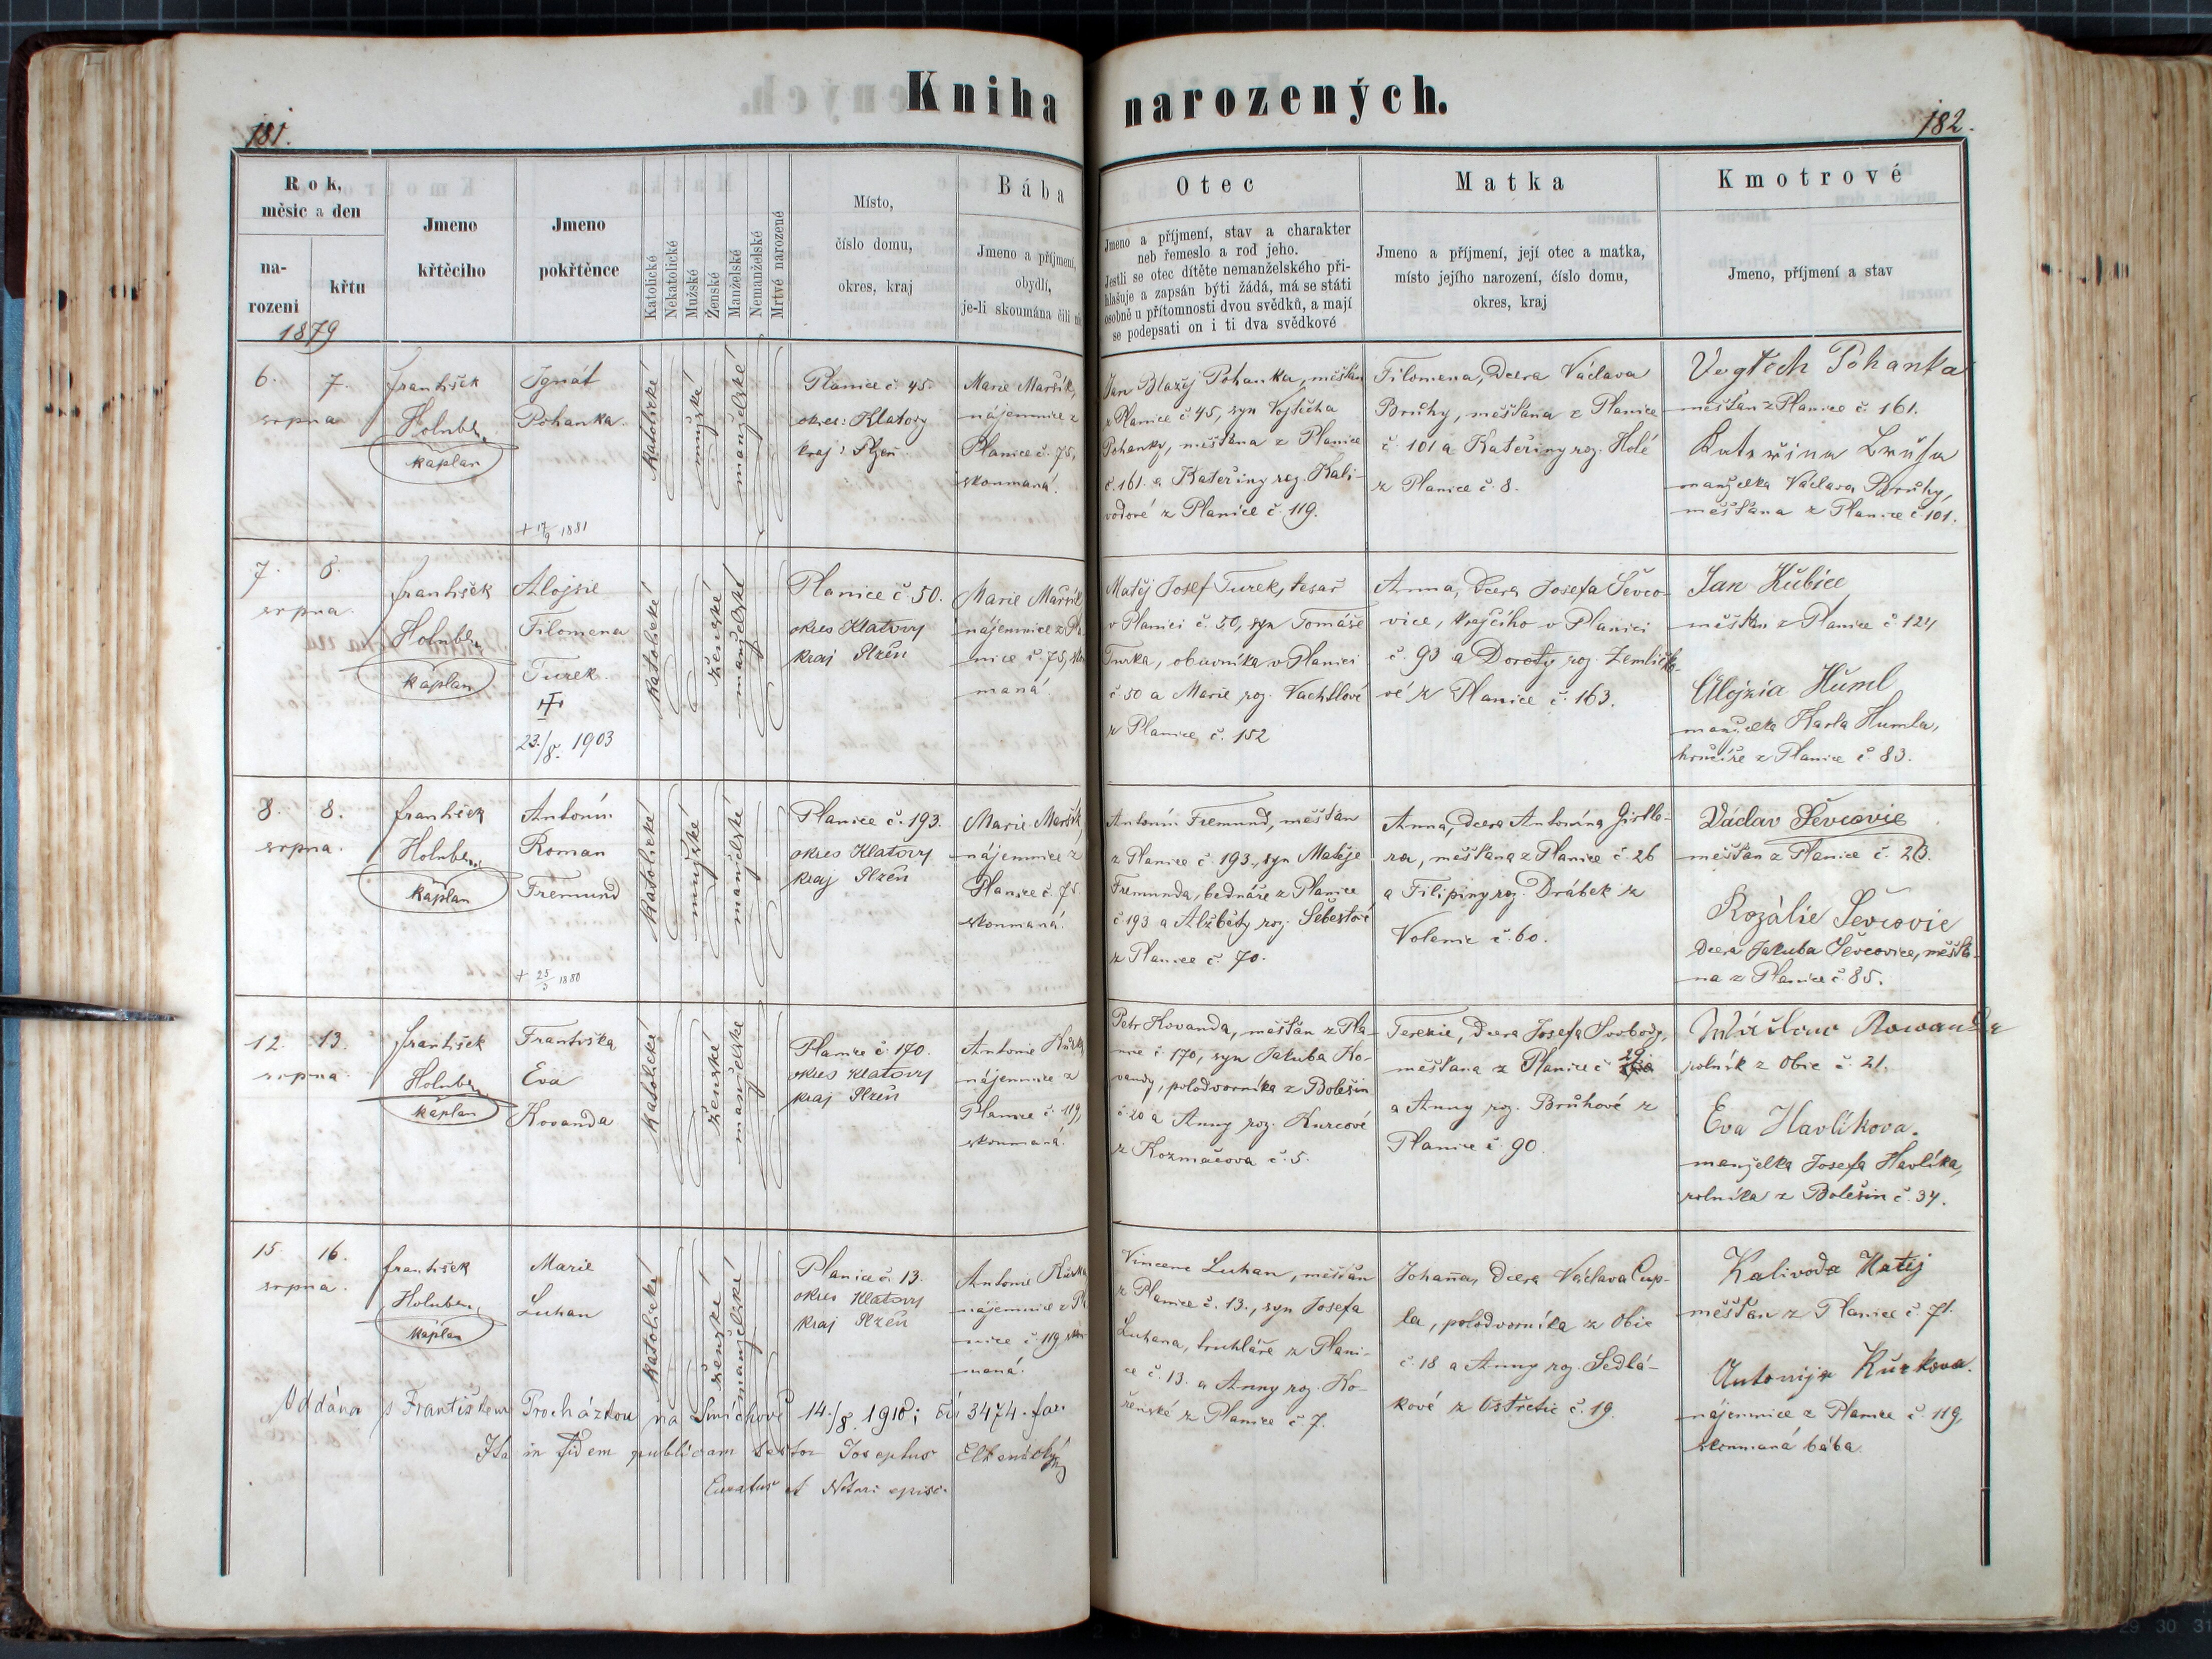 Kniha narozených.
181.
182.
Rok, měsíc a den
na-
rozeni
křtu
Jmeno
křtěcího
Jmeno
pokřtěnce
Katolické
Nekatolické
Mužské
Ženské
Manželské
Nemanželské
Mrtvé narozené
Místo,
číslo domu,
okres, kraj
Bába
Jmeno a příjmení,
obydlí,
je-li skoumána čili
Otec
Jmeno a příjmení, stav a charakter
neb řemeslo a rod jeho.
Jestli se otec dítěte nemanželského při-
hlašuje a zapsán býti žádá, má se státi
osobně u přítomnosti dvou svědků, a mají
se podepsati on i ti dva svědkové
Matka
Jmeno a příjmení, její otec a matka,
místo jejího narození, číslo domu,
okres, kraj
Kmotrové
Jmeno, příjmení a stav
1879
6. 7.
srpna
František
Holub
kaplan
Ignát
Pohanka.
+ 17/9 1881
katolické
mužské
manželské
Planice č. 45.
okres: Klatovy
kraj: Plzeň
Marie Maršík,
nájemnice z
Planice č. 75,
skoumaná.
Jan Blažej Pohanka, měšťan
z Planice č. 45, syn Vojtěcha
Pohanky, měšťana z Planice
č. 161. a Kateřiny roz. Kali-
vodové z Planice č. 119.
Filomena, dcera Václava
Brůhy, měšťana z Planice
č. 101 a Kateřiny roz. Holé
z Planice č. 8.
Vogtěch Pohanka
měšťan z Planice č. 161.
Kateřina
manželka Václava Brůhy,
měšťana z Planice č. 101.
7. 8.
srpna.
František
Holub
kaplan
Alojsie
Filomena
Turek.
23./8. 1903
katolické
ženské
manželské
Planice č. 50.
okres Klatovy
kraj Plzeň
Marie Maršík
nájemnice z Pla
nice č. 75, sko
maná.
Matěj Josef Turek, tesař
v Planici č. 50, syn Tomáše
Turka, obuvníka v Planici
č. 50 a Marie roz. Vachtlové
z Planice č. 152
Anna, dcera Josefa Ševco-
vice, krejčího v Planici
č. 93 a Doroty roz. Zemličko-
vé z Planice č. 163.
Jan Kubice
měšťan z Planice č. 124
Alojzia Huml
manželka Karla Humla,
hrnčíře z Planice č. 83.
8. 8.
srpna.
František
Holub
kaplan
Antonín
Roman
Fremund
+ 25/5 1880
katolické
mužské
manželské
Planice č. 193.
okres Klatovy
kraj Plzeň
Marie Maršík,
nájemnice z
Planice č. 75
skoumaná.
Antonín Fremund, měšťan
z Planice č. 193., syn Matěje
Fremunda, bednáře z Planice
č. 193 a Alžběty roz. Šebestové
z Planice č. 70.
Anna, dcera Antonína
měšťana z Planice č. 26
a Filipiny roz. Drábek z
Volenic č. 60.
Václav Ševcovic
měšťan z Planice č. 213.
Rozálie Ševcovic
dcera Jakuba Ševcovice, měšťa-
na z Planice č. 85.
12. 13.
srpna.
František
Holub
kaplan
Františka
Eva
Kovanda
katolické
ženské
manželské
Planice č. 170.
okres Klatovy
kraj Plzeň
Antonie Kůrka,
nájemnice z
Planice č. 119,
skoumaná.
Petr Kovanda, měšťan z Pla-
nice č. 170, syn Jakuba Ko-
vandy, polodvorníka z Bolešin
č. 20 a Anny roz. Kurcové
z Kozmačova č. 5.
Terezie, dcera Josefa Svobody,
měšťana z Planice č. 29
a Anny roz. Brůhové z
Planice č. 90.
Kowanda
rolník z Obic č. 21.
Eva Havlíkova.
manželka Josefa Havlíka,
rolníka z Bolešin č. 34.
15. 16.
srpna.
František
Holub
kaplan
Marie
Luhan
katolické
ženské
manželské
Planice č. 13.
okres Klatovy
kraj Plzeň
Antonie Kůrka
nájemnice z Pla
nice č. 119, skou
maná.
Vincenc Luhan, měšťan
z Planice č. 13., syn Josefa
Luhana, truhláře z Plani-
ce č. 13. a Anny roz. Ko-
ženské z Planice č. 7.
Johana, dcera Václava Cup-
la, polodvorníka z Obic
č. 18 a Anny roz. Sedlá-
kové z Ostřetic č. 19.
Kalivoda Matěj
měšťan z Planice č. 71.
Antonija Kůrkova.
nájemnice z Planice č. 119,
skoumaná bába.
Oddána s Františkem Procházkou na Smíchově 14./8. 1910; čís 3474. far.
Ita in fidem publicam testor Josephus
Curatus et Notari episc.